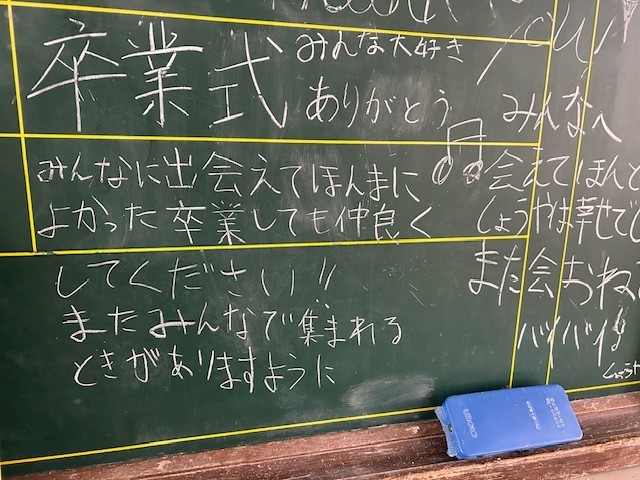 卒業式 みんな大好き
ありがとう
みんなに出会えてほんまに
よかった卒業しても仲良く
してください!!
またみんなで集まれる
ときがありますように
みんなへ
会えてほんと
しょうやは幸せで
また会おね
バイバイ